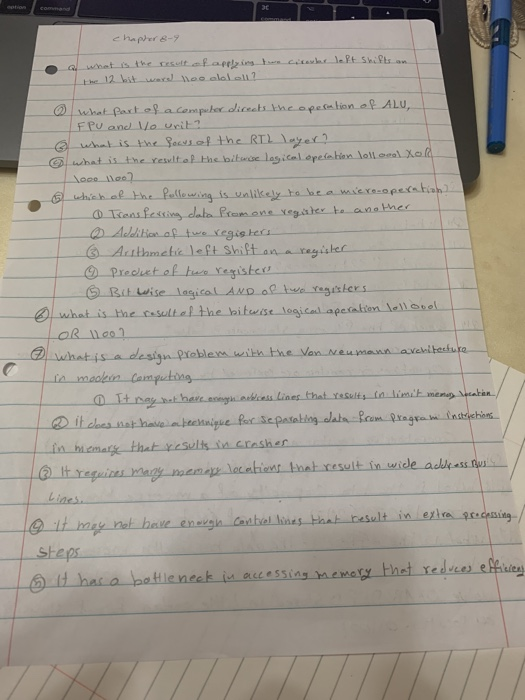 option
command
⌘
command
chapter 8-9
① what is the result of applying two circular left shifts on
the 12 bit word 1100 0101 011?
② what part of a computer directs the operation of ALU,
FPU and I/o unit?
③ what is the focus of the RTL layer?
④ what is the result of the bitwise logical operation 1011 0001 XOR
1000 1100?
⑤ which of the following is unlikely to be a micro-operation?
① Transferring data from one register to another
② Addition of two registers
③ Arithmetic left shift on a register
④ product of two registers
⑤ Bit wise logical AND of two registers
⑥ what is the result of the bitwise logical operation 1011 0001
OR 1100?
⑦ what is a design problem with the Von Neumann architecture
in modern computing
① It may not have enough address lines that results in limit memory location
② It does not have a technique for separating data from program instructions
in memory that results in crashes
③ It requires many memory locations that result in wide address bus
lines.
④ It may not have enough control lines that result in extra processing
steps
⑤ It has a bottleneck in accessing memory that reduces efficiency